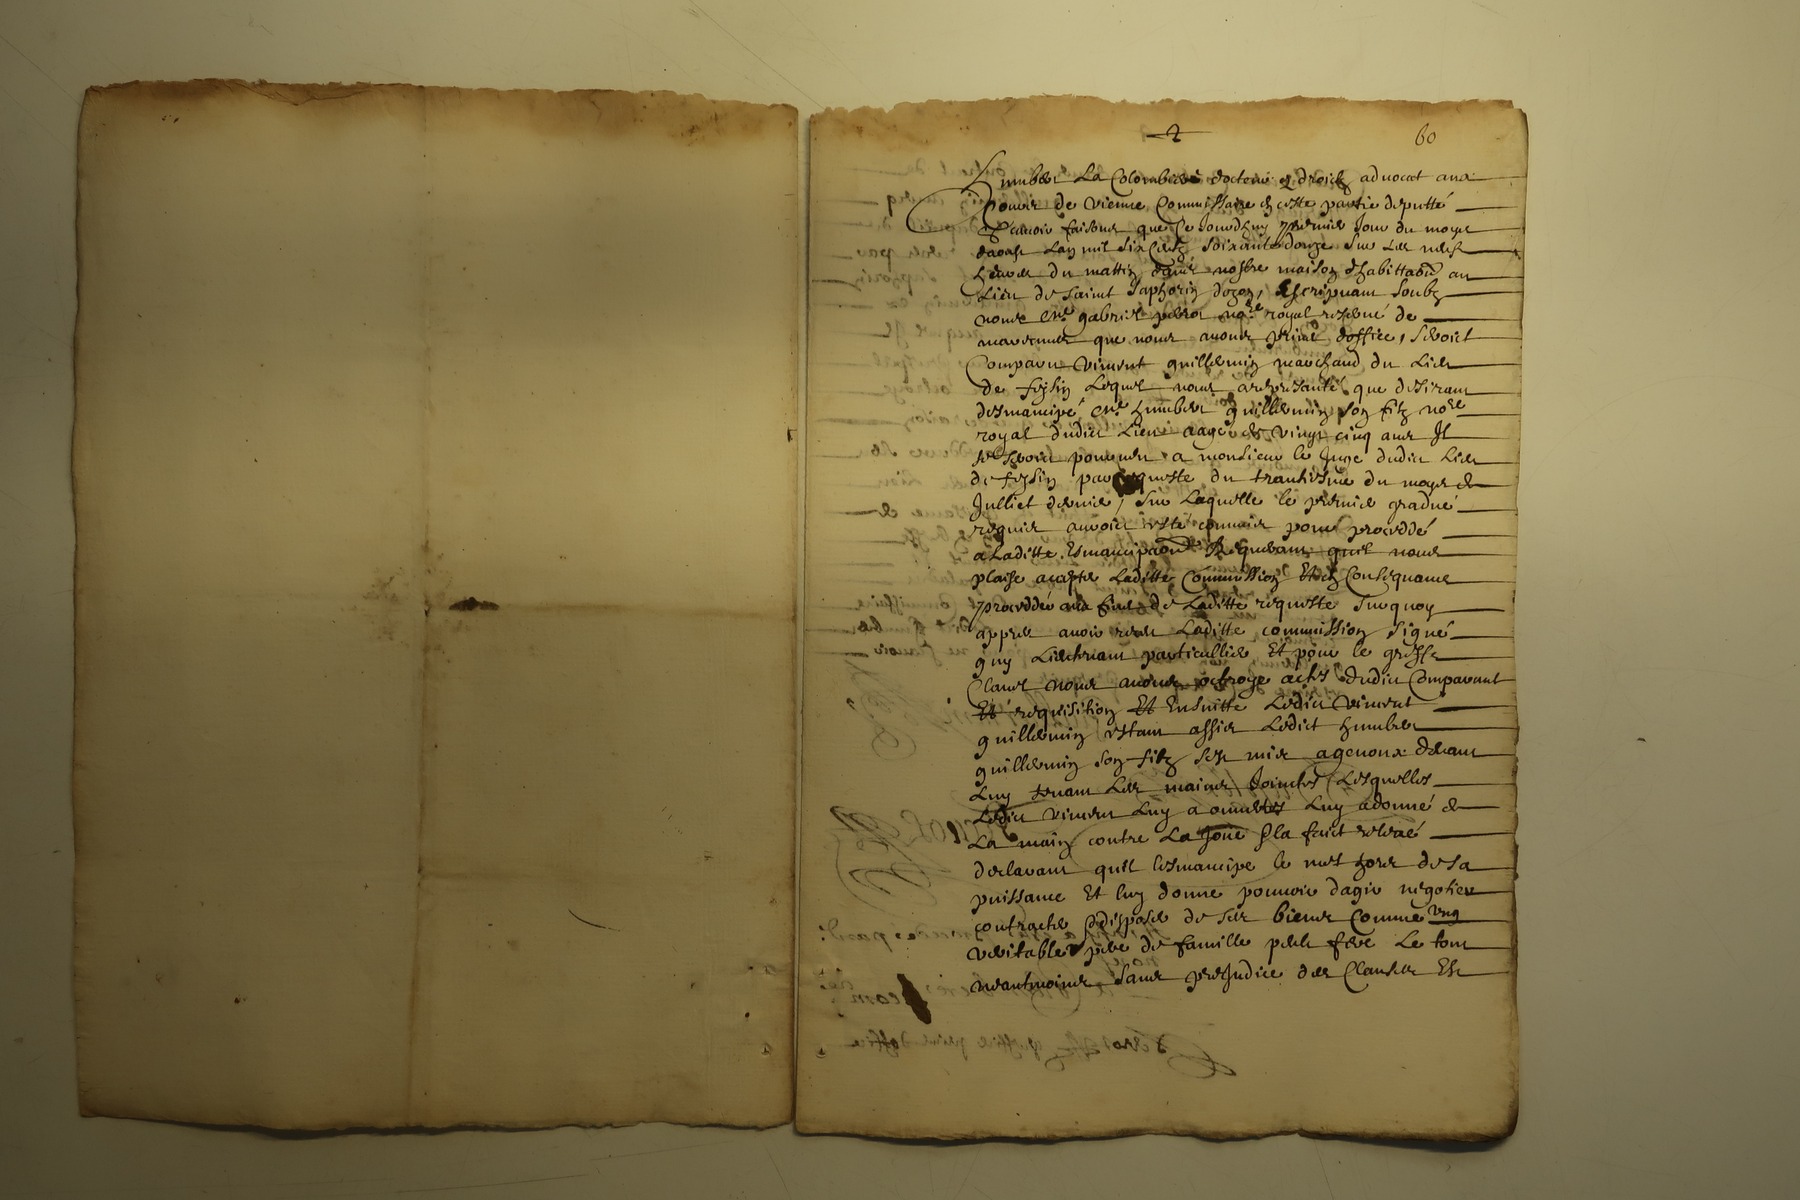 2
60
humbert La Colombiere docteur es droictz advocat aux
Cours de vienne Commissaire en ceste partie deputté
Scavoir faisons que Ce Jourdhuy premier Jour du moys
daoust Lan mil six Centz soixante douze sur Les neuf
heures du mattin dans nostre maison dhabittaon au
Lieu de saint Saphorin dozon, Escripvant soubz
nous me gabriel perrot nore royal reservé de
marennes que nous avons prins doffice, seroict
Comparu vincent guillermin marchand du Lieu
de feysin Lequel nous a represanté que desirant
desmanciper me humbert guillermin son filz nore
royal dudict Lieu aagé de vingt cinq ans Il
se seroict pourveu a monsieur le Juge dudict Lieu
de feysin par requeste du trantiesme du moys de
Julliet dernier, sur Laquelle le premier gradué
requis auroict esté commis pour procedder
a Laditte Esmancipaon Requerant quil nous
plaise accepter Laditte Commission Et en Consequance
procedder aux fins de Laditte requeste surquoy
appres avoir receu Laditte commission signé
guy Lieutenant particullier Et pour le greffe
Clavel nous avons octroyé actes dudict Comparant
Et requisition Et Ensuitte Ledict vincent
guillermin estant assis Ledict humbert
guillermin son filz sest mis a genoux devant
Luy tenant Les mains Jointes Lesquelles
Ledict vincent Luy a ouvertes Luy a donné de
La main contre La Joue & la faict relever
declarant quil lesmancipe le met hors de sa
puissance Et luy donne pouvoir dagir negotier
contracter & disposer de ses biens Comme ung
veritable pere de famille peult fere Le tout
neantmoins sans preJudice des Clauses Et